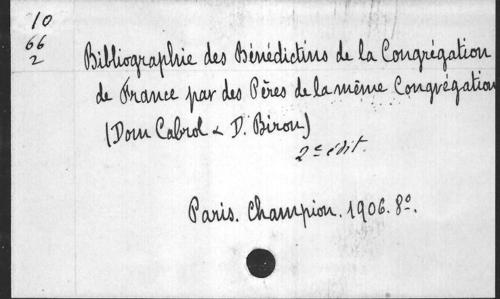 10
66
2
Bibliographie des Bénédictins de la Congrégation
de France par des Pères de la même Congrégation
(Dom Cabrol & D. Biron)
2e édit.
Paris. Champion. 1906. 8o.